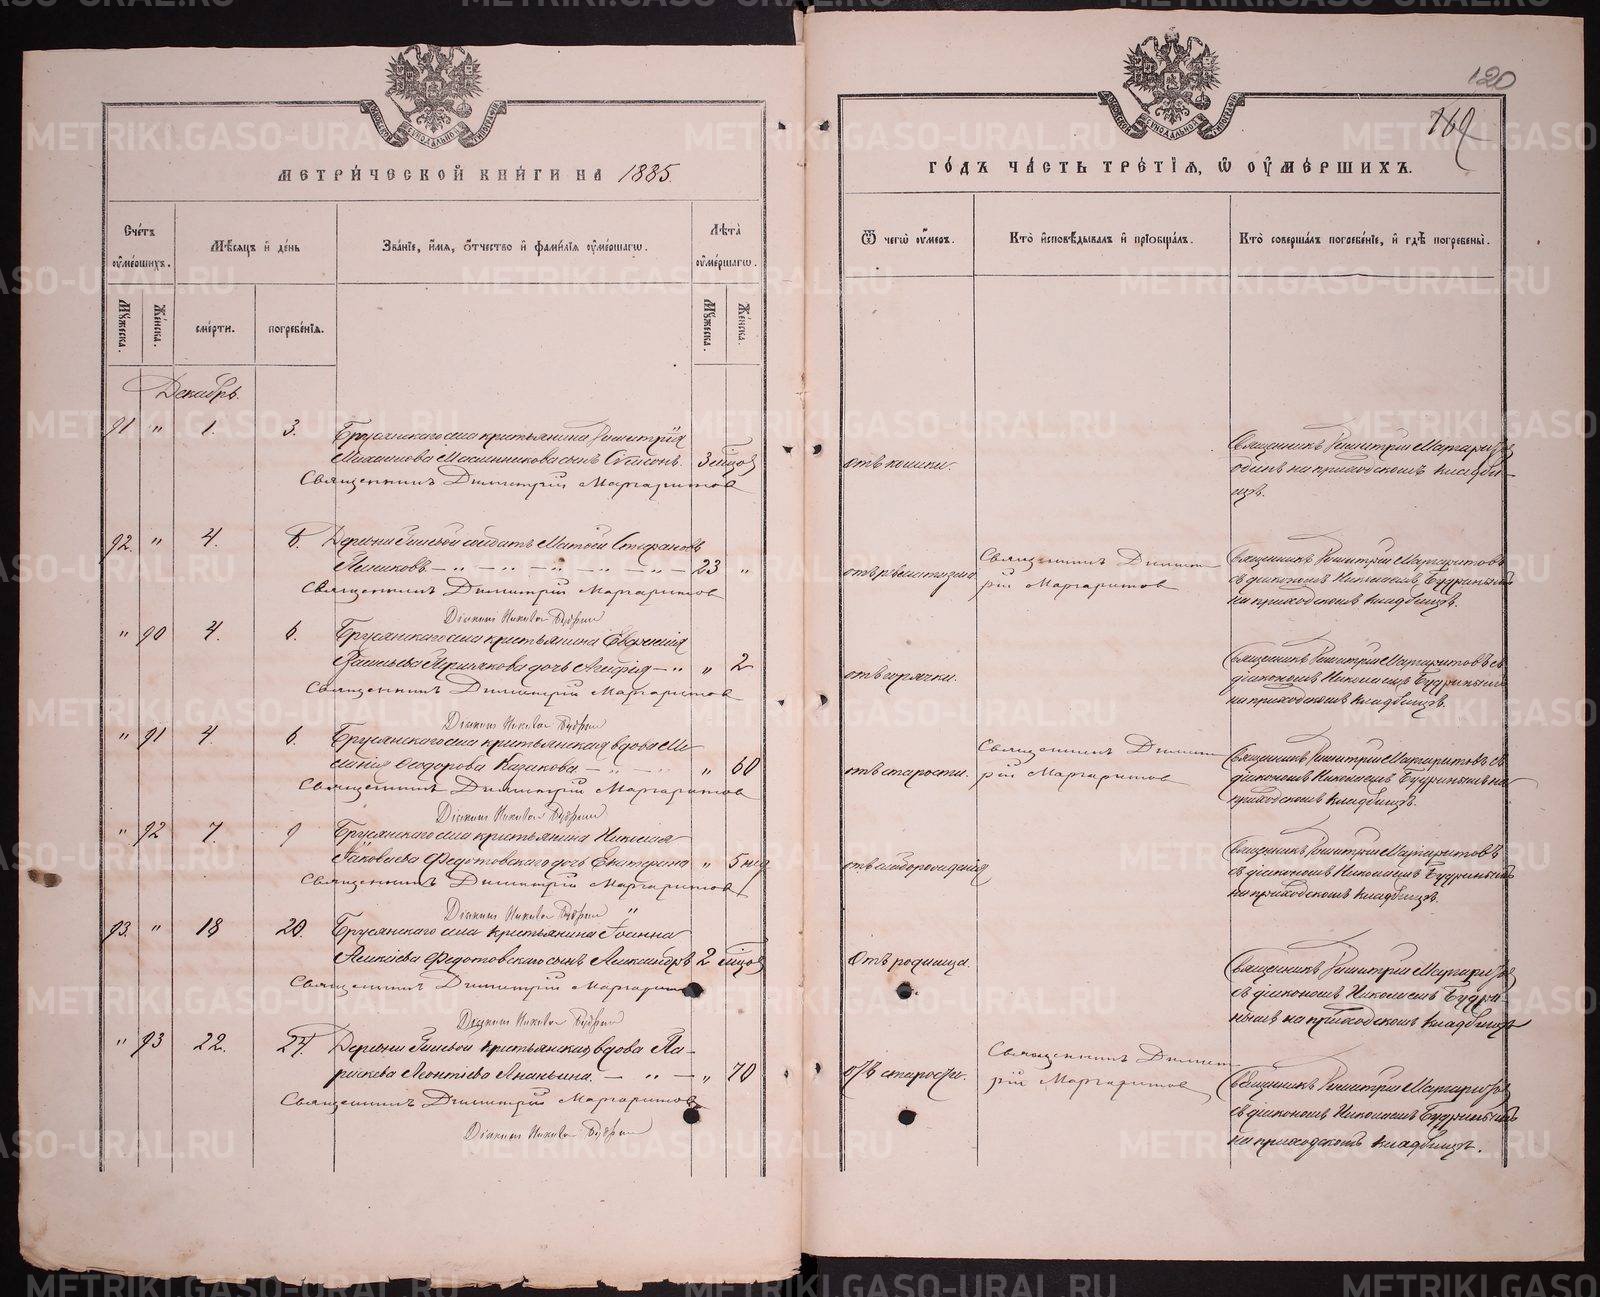 МЕТРИ́ЧЕСКОЙ КНИ́ГИ НА 1885.
Сче́тъ оу҆ме́ршихъ.
Мѣ́сяцъ и҆ де́нь
Зва́нїе, и҆́мя, ѻ҆́тчество и҆ фами́лїя оу҆ме́ршагѡ.
Лѣ́та оу҆ме́ршагѡ.
Мꙋ́жеска.
Же́нска.
сме́рти.
погребе́нїя.
Мꙋ́жеска.
Же́нска.
Декабрь.
91 " 1. 3. Брусянскаго села крестьянина Димитрія
Михайлова Масленникова сынъ Симеонъ. 3 мѣсцов
Священникъ Димитрій Маргаритов
92. " 4. 6. Деревни солдатъ Матѳей Стефановъ
23 "
Священникъ Димитрій Маргаритов
Діаконъ Николай Будрин
" 90 4. 6. Брусянскаго села крестьянина Евгенія
Васильева дочь " 2
Священникъ Димитрій Маргаритов
Діаконъ Николай Будрин
" 91 4. 6. Брусянскаго села крестьянская вдова Ме-
ланія Ѳеодорова Казакова " 60
Священникъ Димитрій Маргаритов
Діаконъ Николай Будрин
" 92 7. 9 Брусянскаго села крестьянина Алексія
Іаковлева Федотовскаго дочь Екатерина " 5 нед
Священникъ Димитрій Маргаритов
Діаконъ Николай Будрин "
93. " 18 20. Брусянскаго села крестьянина Іоанна
Алексіева Федотовскаго сынъ Александръ 2 мѣсцов
Священникъ Димитрій Маргаритов
Діаконъ Николай Будрин
" 93 22. 24. Деревни крестьянская вдова Па-
раскева Леонтіева Ананьина. " 70
Священникъ Димитрій Маргаритов
Діаконъ Николай Будрин
120
169
ГО́ДЪ ЧА́СТЬ ТРЕ́ТІЯ, Ѡ҆ ОУ҆МЕ́РШИХЪ.
Ѿ чегѡ̀ оу҆́меръ.
Кто̀ и҆сповѣ́дывалъ и҆ прїобща́лъ.
Кто̀ соверша́лъ погребе́нїе, и҆ гдѣ̀ погребены̀.
отъ кашля.
Священникъ Димитрій Маргаритов
одинъ на приходскомъ кладби-
щѣ.
отъ ревматизма
Священникъ Димит-
рій Маргаритов
Священникъ Димитрій Маргаритовъ
съ діакономъ Николаемъ Будринымъ
на приходскомъ кладбищѣ.
отъ горячки.
Священникъ Димитрій Маргаритовъ съ
діакономъ Николаемъ Будринымъ
на приходскомъ кладбищѣ.
отъ старости.
Священникъ Димит-
рій Маргаритов
Священникъ Димитрій Маргаритовъ съ
діакономъ Николаемъ Будринымъ на
приходскомъ кладбищѣ.
отъ слаборожденія
Священникъ Димитрій Маргаритовъ
съ діакономъ Николаемъ Будринымъ
на приходскомъ кладбищѣ.
Отъ родимца.
Священникъ Димитрій Маргаритов
съ діакономъ Николаемъ Будри-
нымъ на приходскомъ кладбищѣ
отъ старости.
Священникъ Димит-
рій Маргаритов
Священникъ Димитрій Маргаритов
съ діакономъ Николаемъ Будринымъ
на приходскомъ кладбищѣ.
METRIKI.GASO-URAL.RU